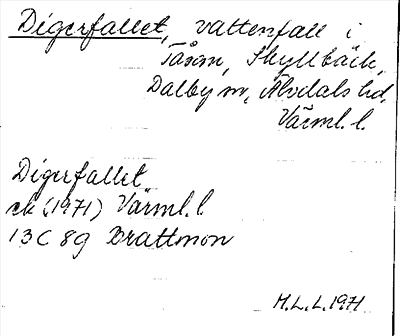 Digerfallet, vattenfall i
Tåsan, Skyllbäck,
Dalby sn, Älvdals hd,
Värml. l.
Digerfallet
ek (1971) Värml. l
13C 8g Brattmon
M.L.L. 1971